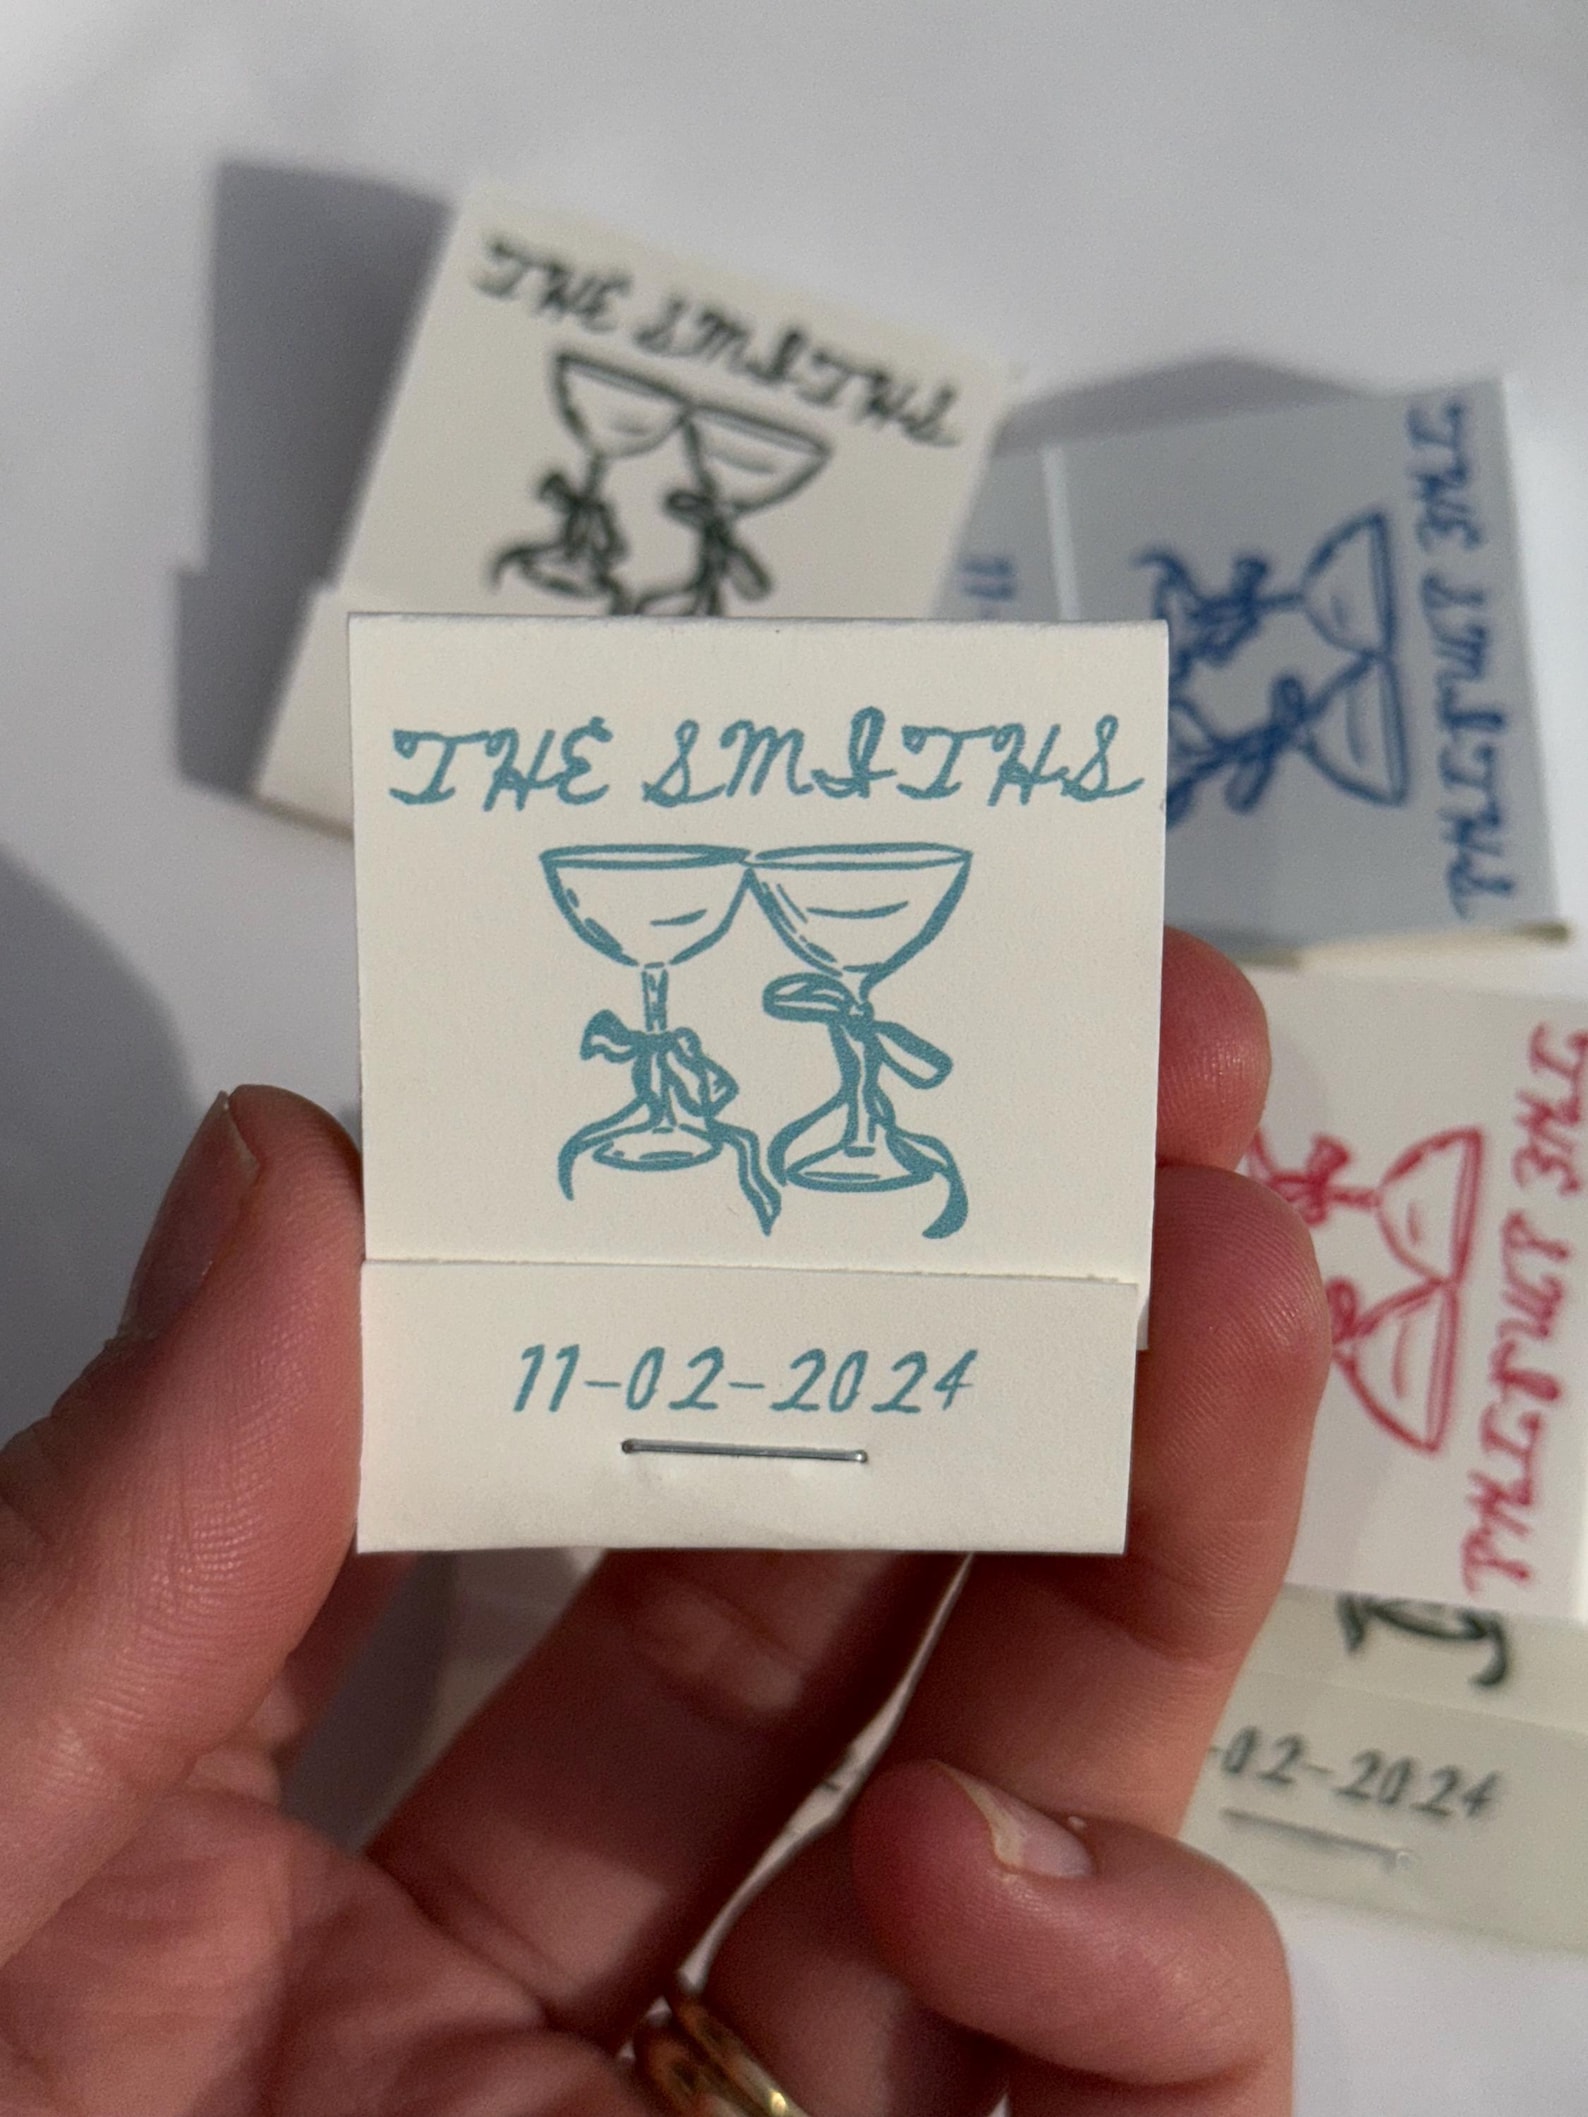 THE SMITHS
THE SMITHS
THE SMITHS
11-
11-02-2024
THE SMITHS
-02-2024